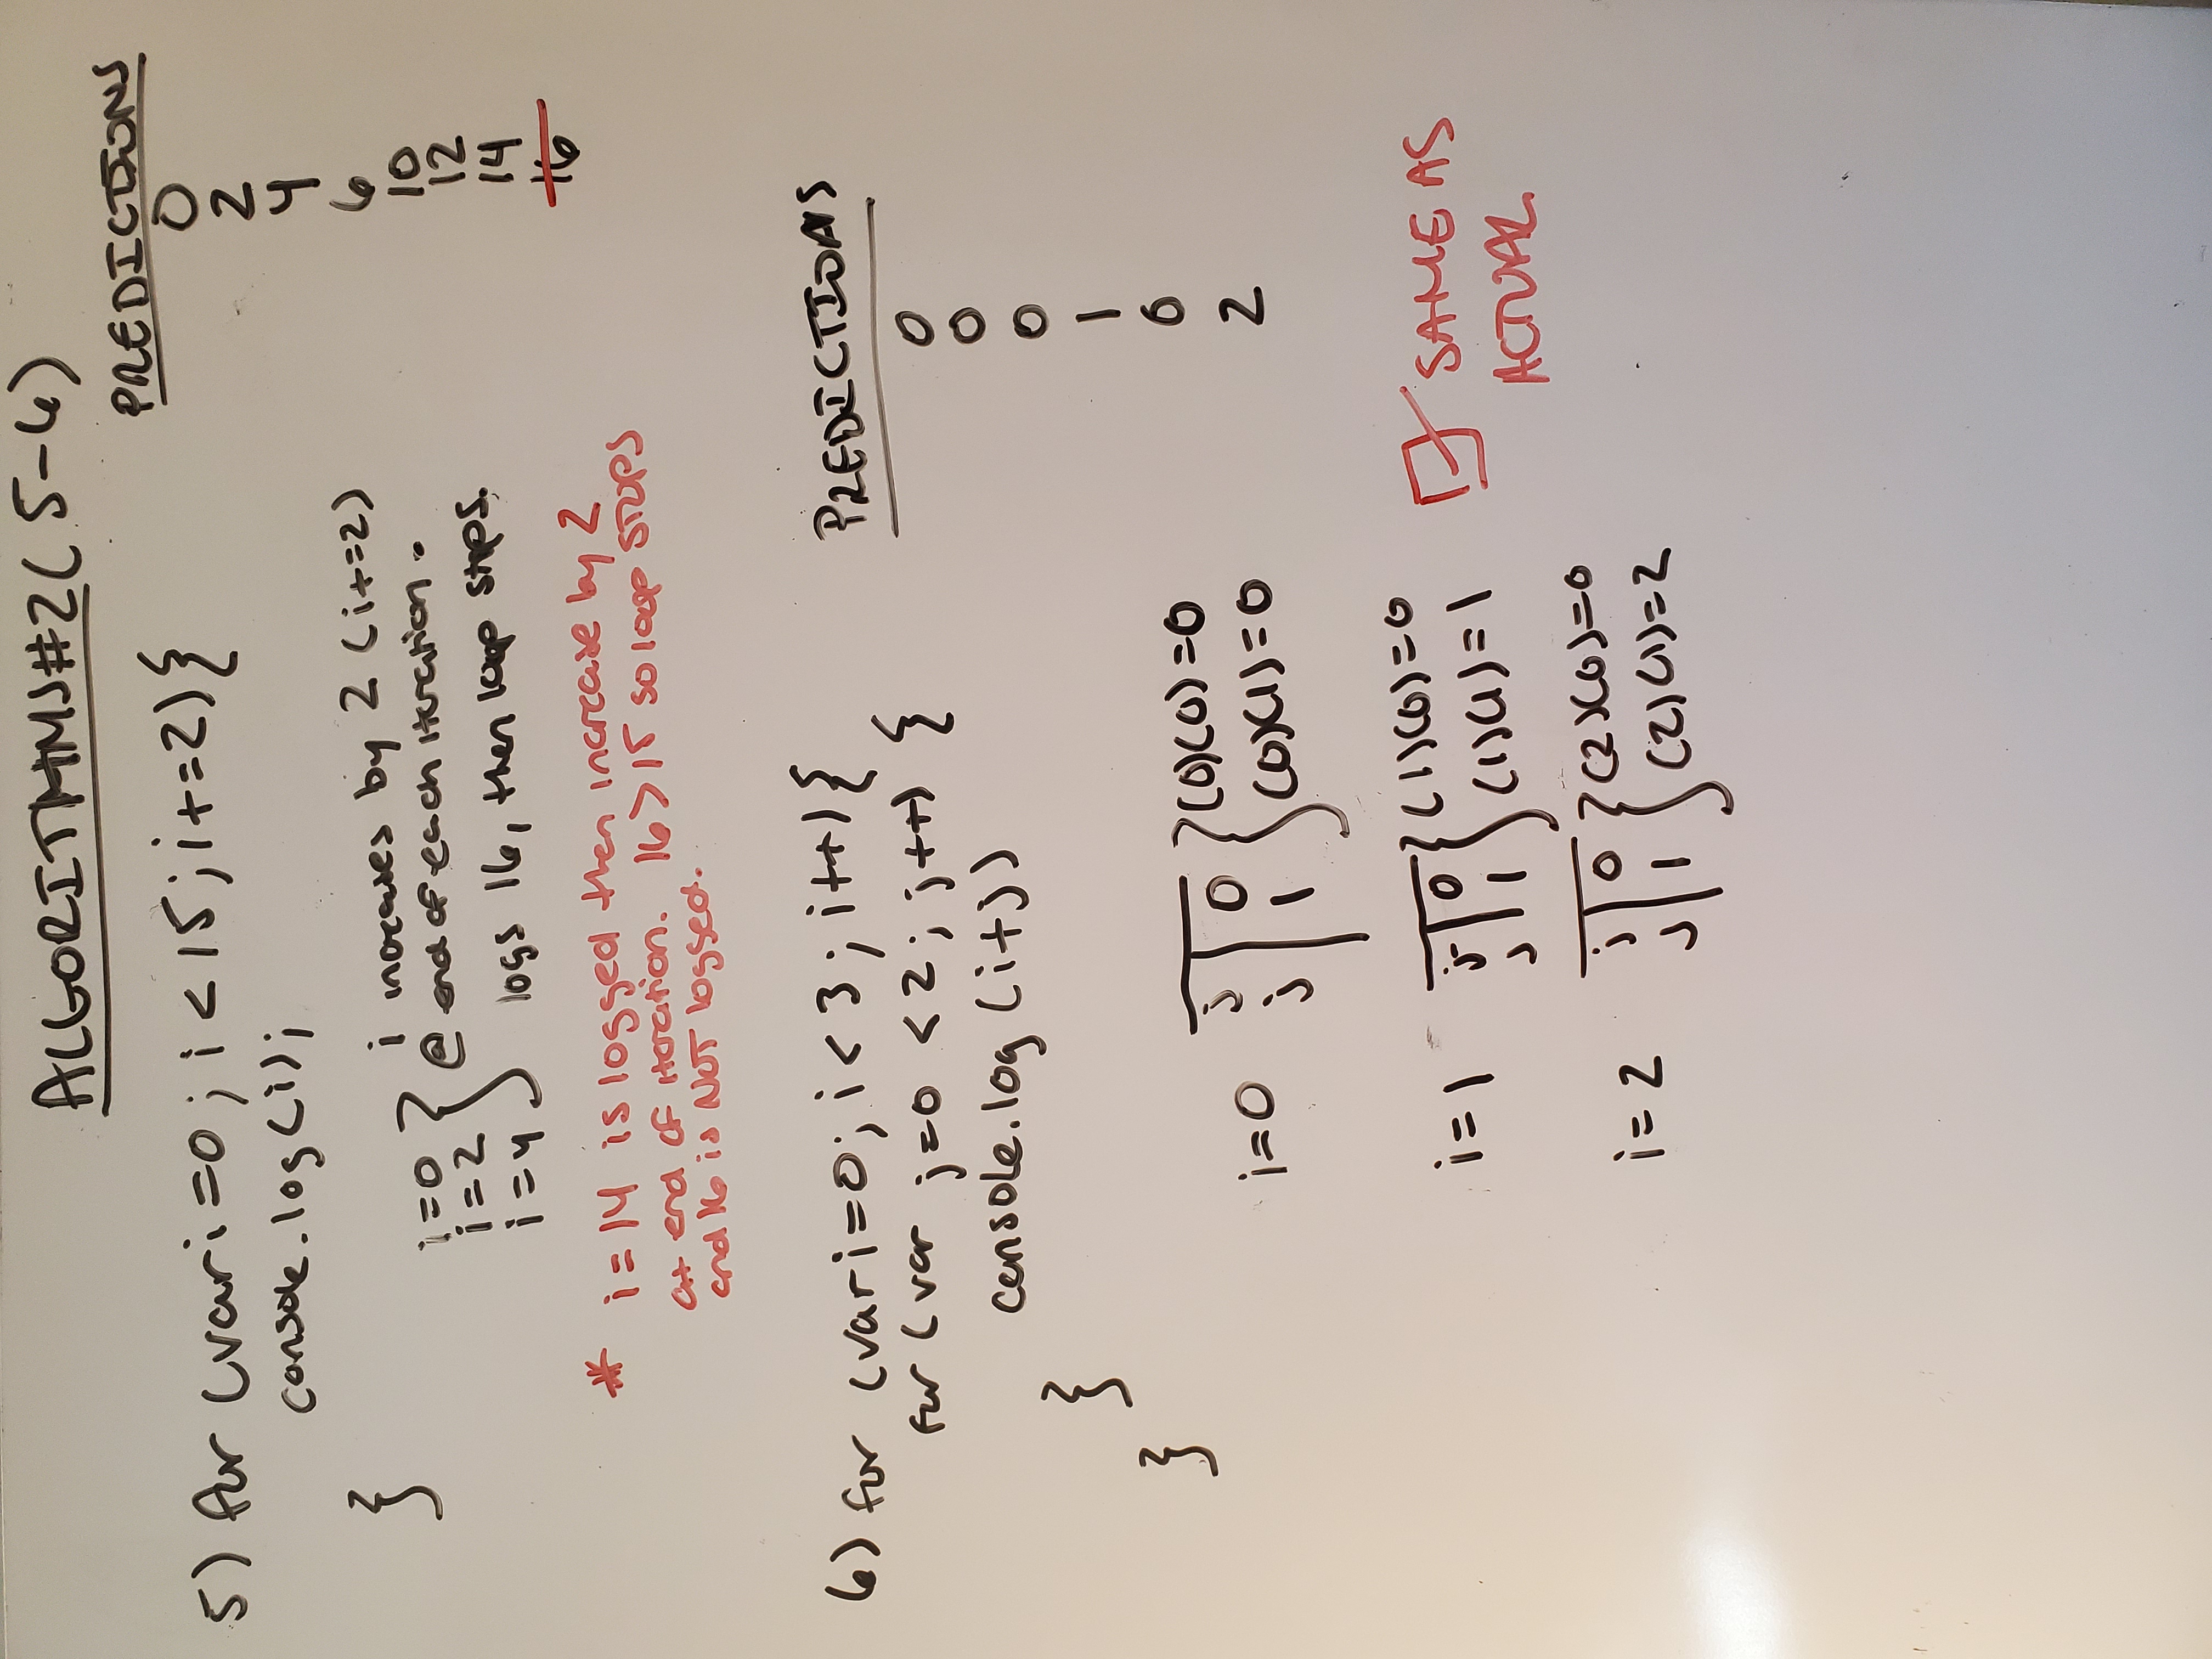 ALGORITHMS#2(5-6)
PREDICTIONS
5) for (var i=0; i<15; i+=2){
console.log(i);
}
i=0
i=2
i=4
i increases by 2 (i+=2)
@ end of each iteration.
logs 16, then loop stops.
0
2
4
6
10
12
14
16
* i=14 is logged then increase by 2
at end of iteration. 16>15 so loop STOPS
and 16 is NOT logged.
6) for (var i=0; i<3; i++){
for (var j=0 <2; j++) {
console.log (i+j)
}
}
PREDICTIONS
0
0
0
1
0
2
i=0
j 0 (0)(0)=0
j 1 (0)(1)=0
i=1
j 0 (1)(0)=0
j 1 (1)(1)=1
i=2
j 0 (2)(0)=0
j 1 (2)(1)=2
SAME AS
ACTUAL